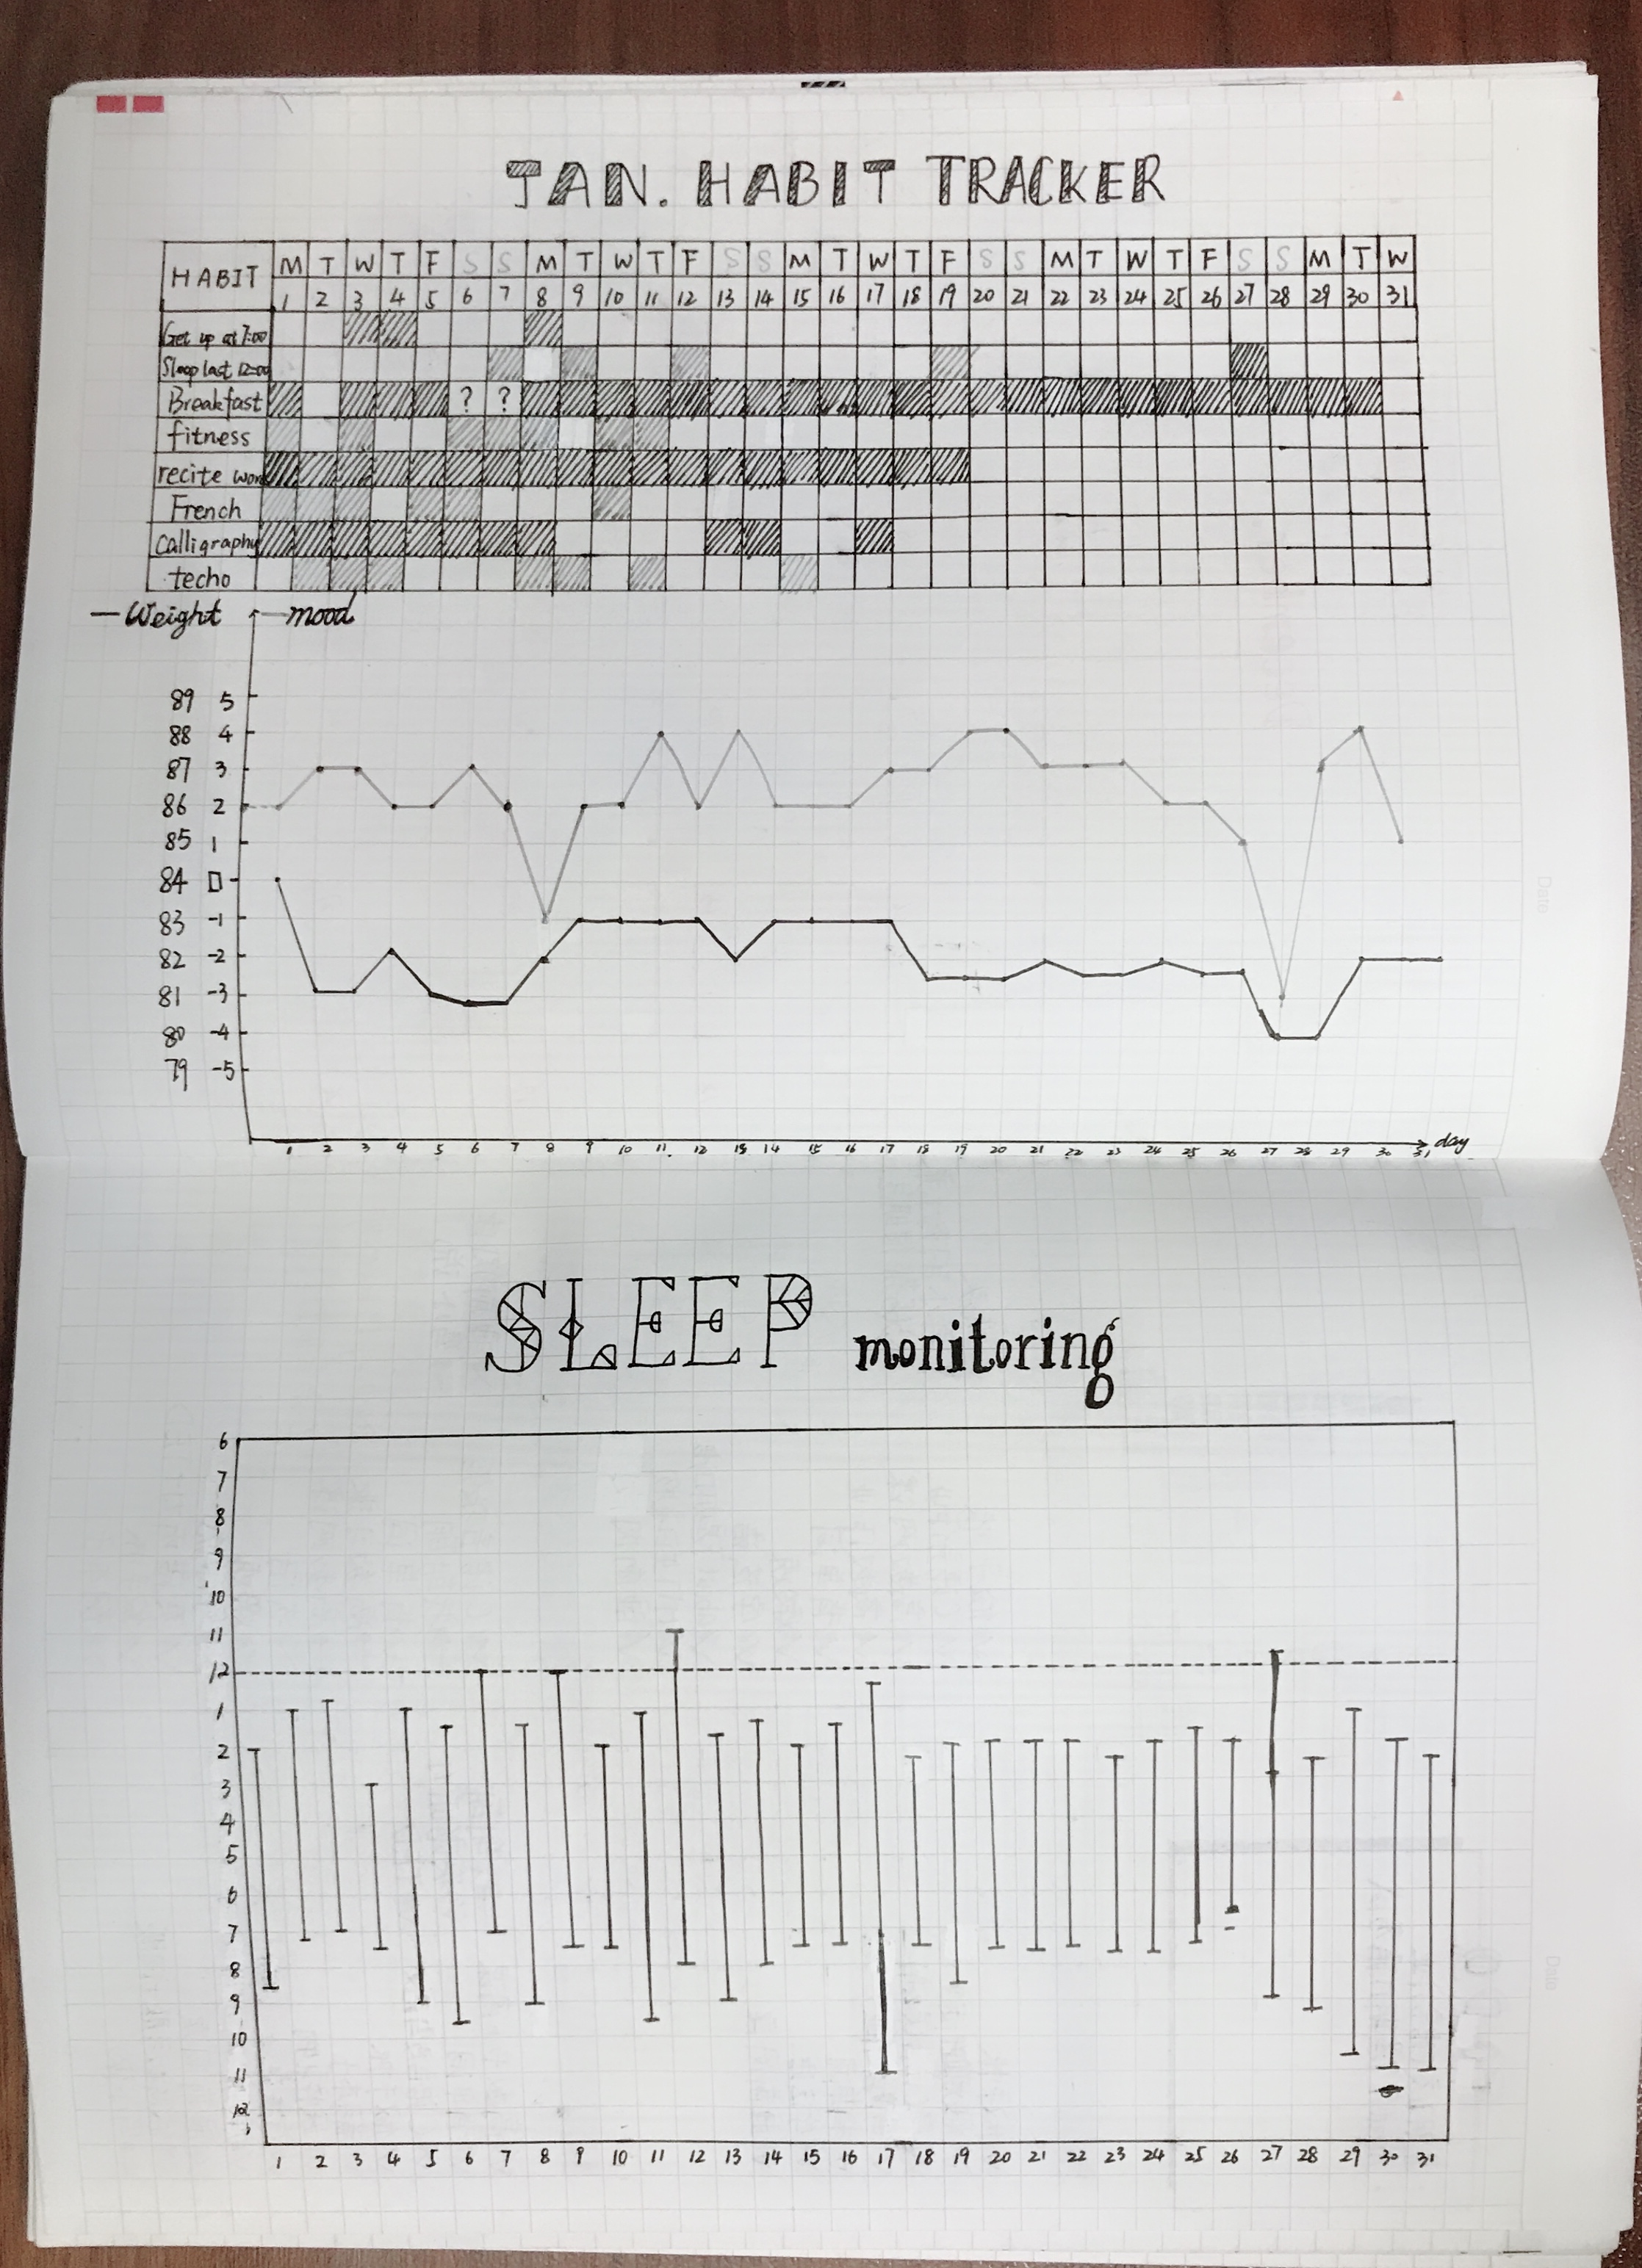 JAN. HABIT TRACKER
HABIT M T W T F S S M T W T F S S M T W T F S S M T W T F S S M T W
1 2 3 4 5 6 7 8 9 10 11 12 13 14 15 16 17 18 19 20 21 22 23 24 25 26 27 28 29 30 31
Get up at 7:00
Sleep last 12:00
Breakfast ? ?
fitness
recite wor
French
calligraphy
techo
— Weight — mood
89 5
88 4
87 3
86 2
85 1
84 0
83 -1
82 -2
81 -3
80 -4
79 -5
1 2 3 4 5 6 7 8 9 10 11 12 13 14 15 16 17 18 19 20 21 22 23 24 25 26 27 28 29 30 31 day
Date
SLEEP monitoring
6
7
8
9
10
11
12
1
2
3
4
5
6
7
8
9
10
11
12
1 2 3 4 5 6 7 8 9 10 11 12 13 14 15 16 17 18 19 20 21 22 23 24 25 26 27 28 29 30 31
Date